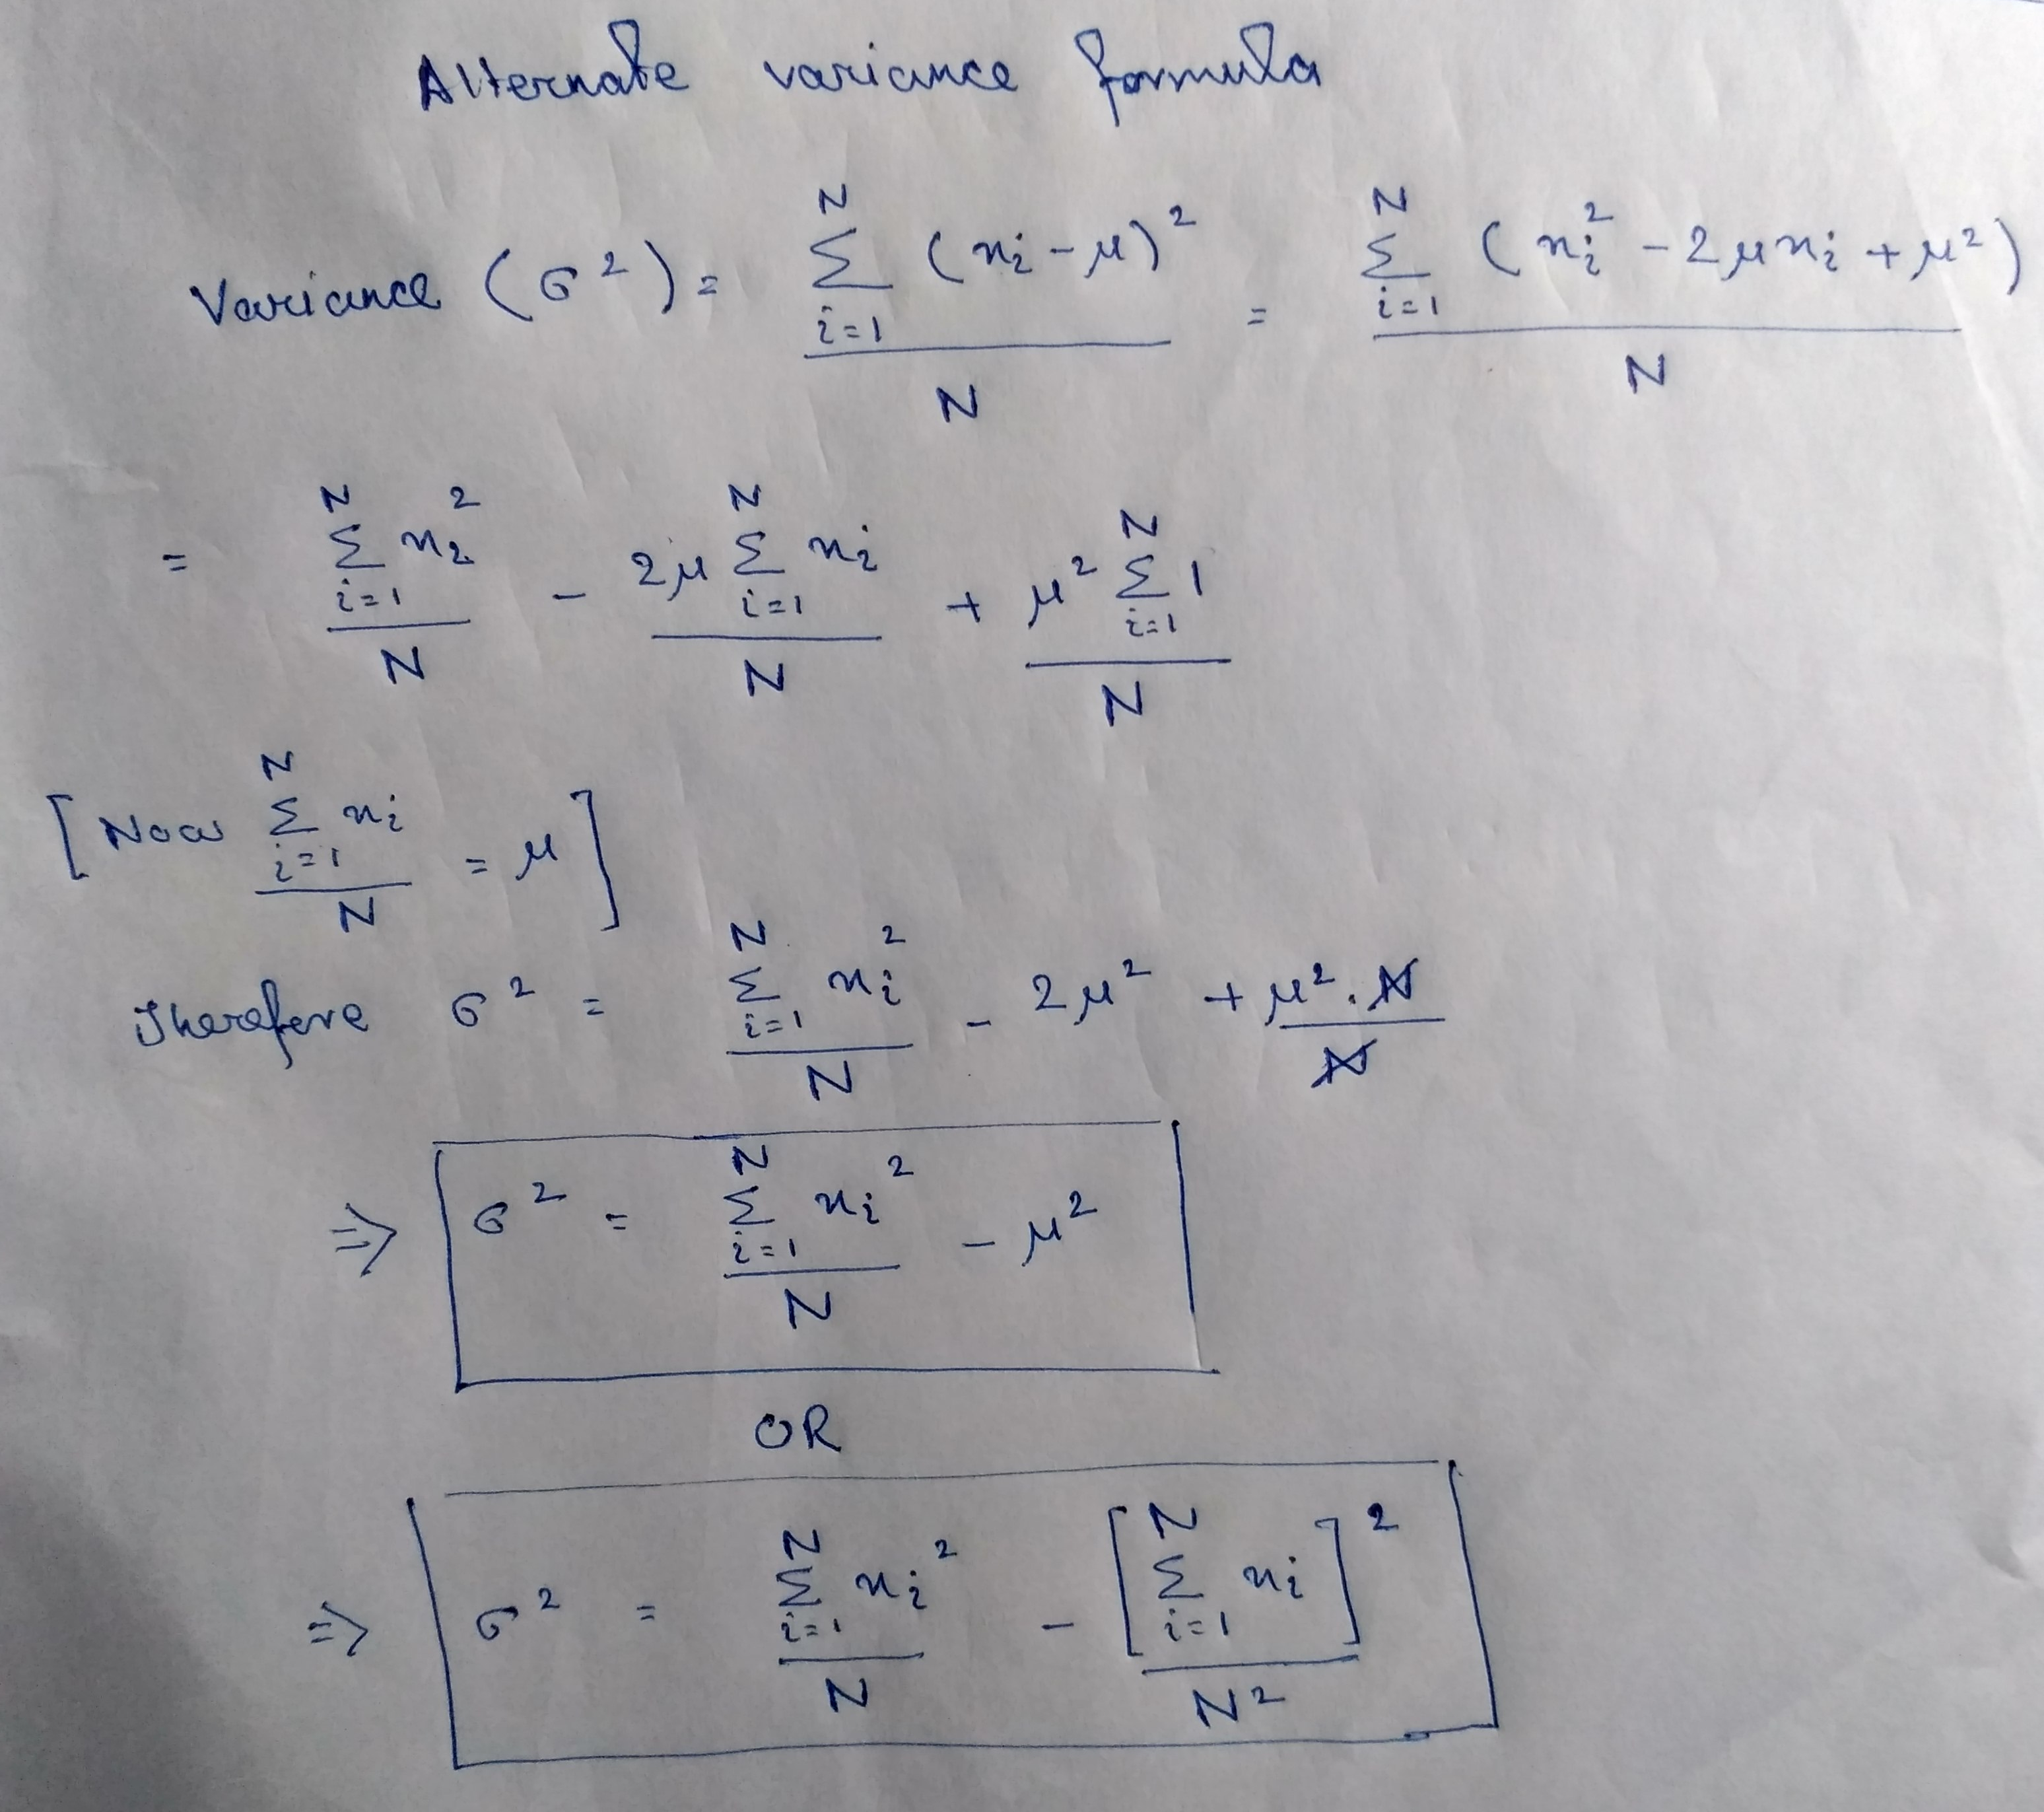 Alternate variance formula
Variance (σ²) = \frac{\sum_{i=1}^{N} (x_i - μ)^2}{N} = \frac{\sum_{i=1}^{N} (x_i^2 - 2μx_i + μ^2)}{N}
= \frac{\sum_{i=1}^{N} x_i^2}{N} - \frac{2μ \sum_{i=1}^{N} x_i}{N} + \frac{μ^2 \sum_{i=1}^{N} 1}{N}
[Now \frac{\sum_{i=1}^{N} x_i}{N} = μ]
Therefore σ² = \frac{\sum_{i=1}^{N} x_i^2}{N} - 2μ^2 + \frac{μ^2 . N}{N}
⇒ σ² = \frac{\sum_{i=1}^{N} x_i^2}{N} - μ^2
OR
⇒ σ² = \frac{\sum_{i=1}^{N} x_i^2}{N} - \frac{[\sum_{i=1}^{N} x_i]^2}{N^2}